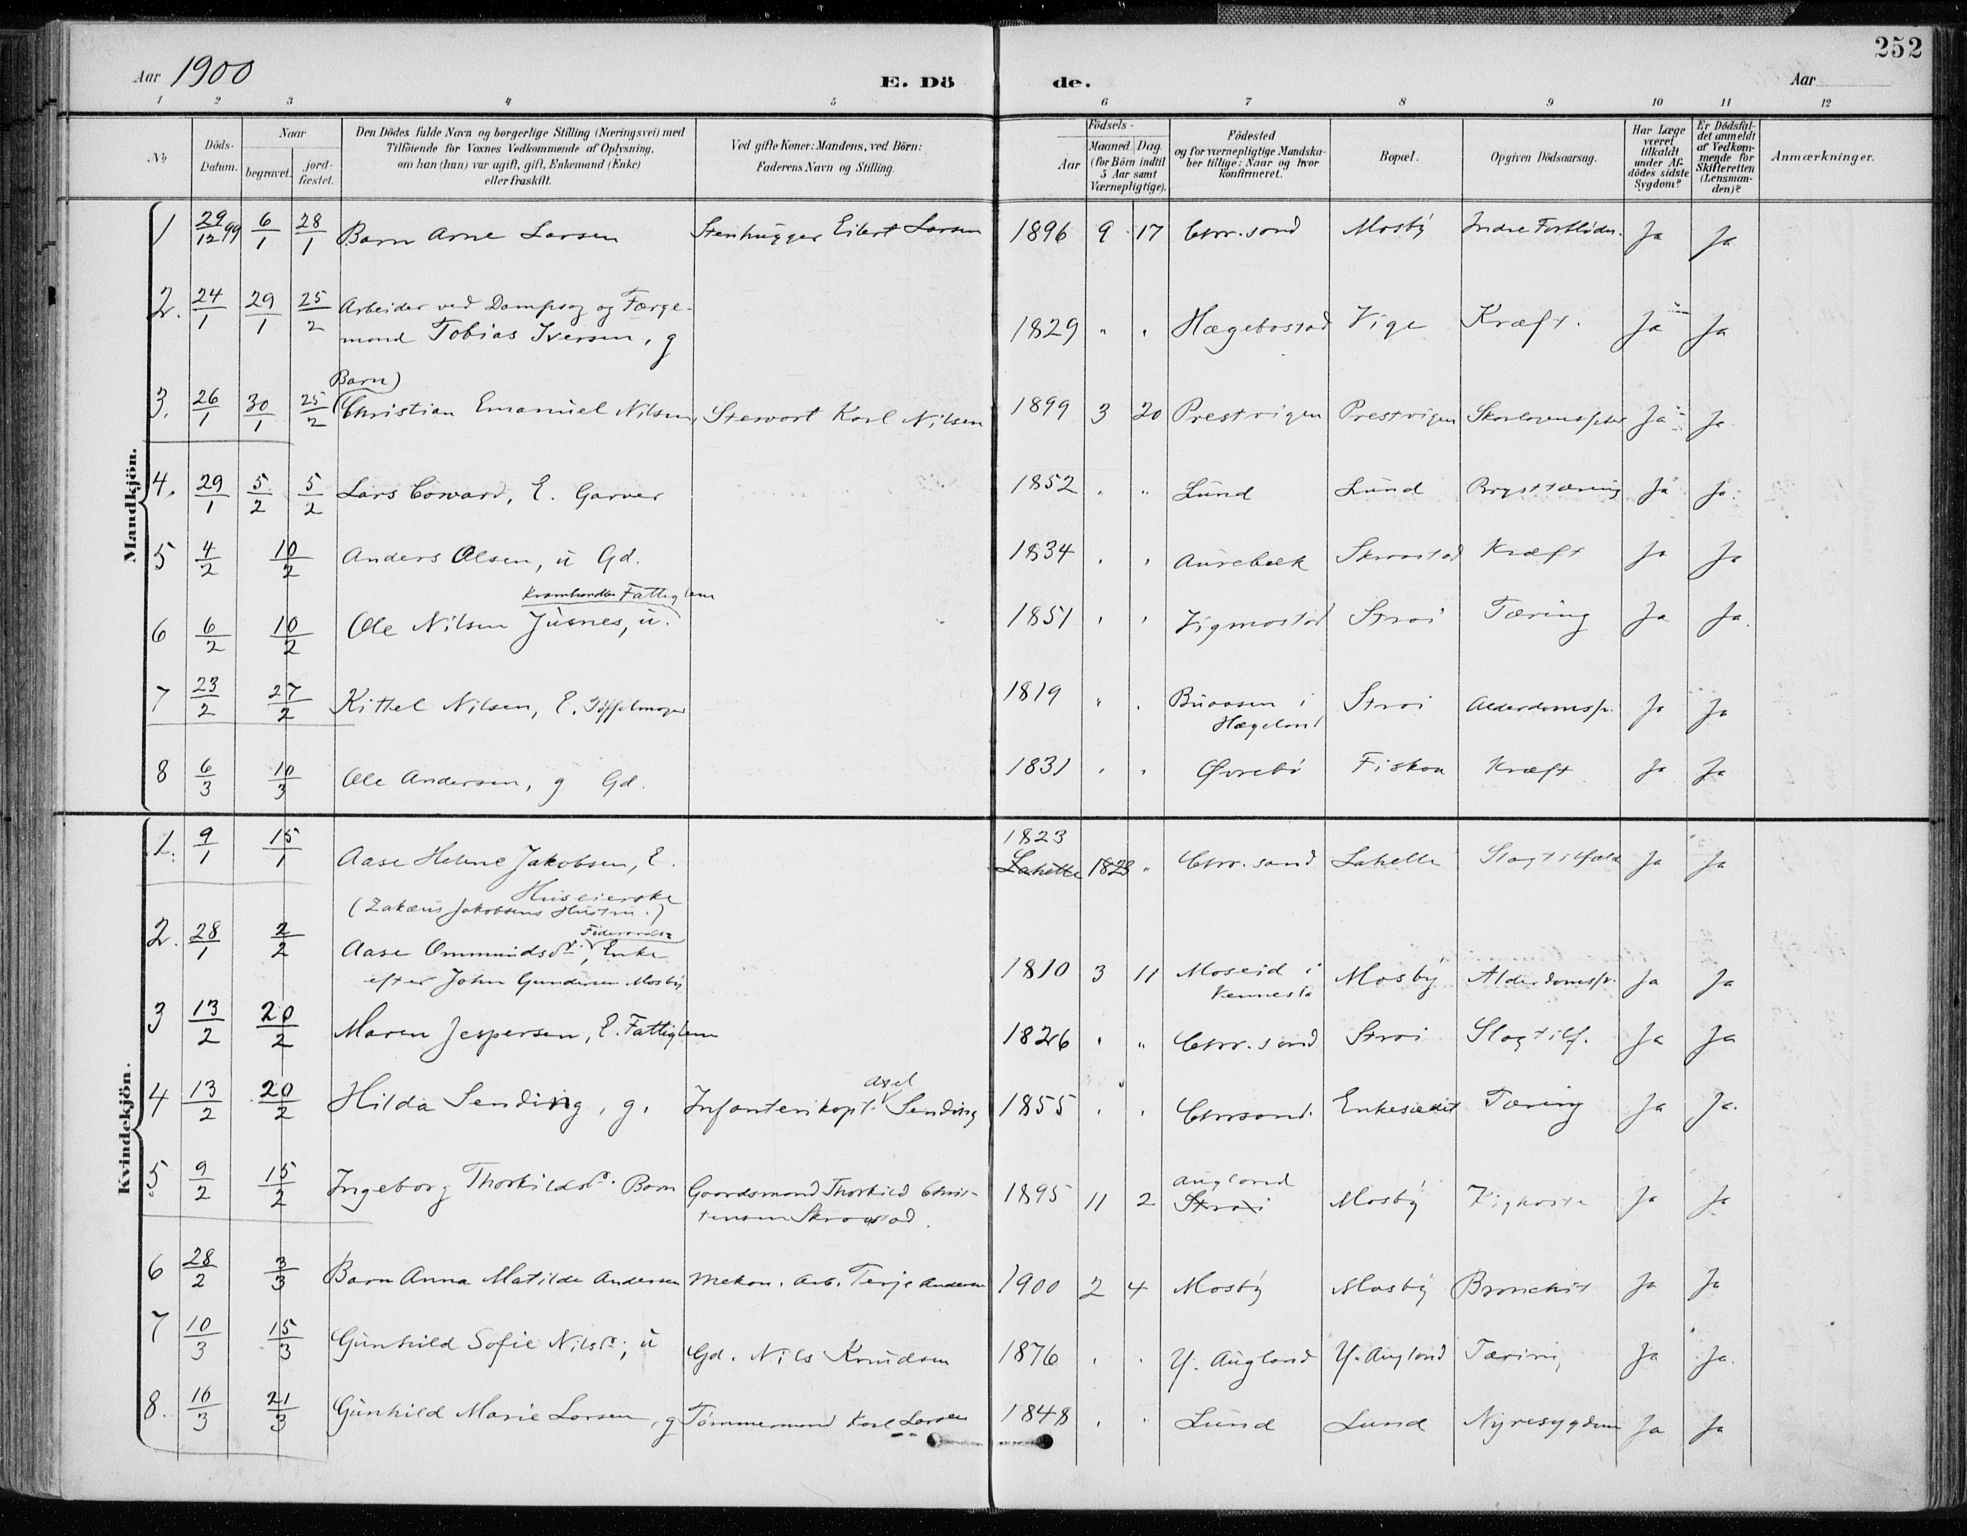 252
Aar 1900 E. Dö de. Aar
1 2 3 4 5 6 7 8 9 10 11 12
№
Döds-Datum.
Naar
begravet. jord-fæstet.
Den Dödes fulde Navn og borgerlige Stilling (Næringsvei) med
Tilföiende for Voxnes Vedkommende af Oplysning,
om han (hun) var ugift, gift, Enkemand (Enke)
eller fraskilt.
Ved gifte Koner: Mandens, ved Börn:
Faderens Navn og Stilling.
Födsels-
Aar Maaned. Dag.
(for Börn indtil
5 Aar samt
Værnepligtige).
Födested
og for værnepligtige Mandska-
ber tillige: Naar og hvor
Konfirmeret.
Bopæl.
Opgiven Dödsaarsag.
Har Læge
været
tilkaldt
under Af-
dödes sidste
Sygdom?
Er Dödsfal-
det anmeldt
af Vedkom-
mende for
Skifteretten
(Lensman-
den)?
Anmærkninger.
Mandkjön.
1 29/12 99 6/1 28/1 Barn Arne Larsen Stenhugger Eilert Larsen 1896 9 17 Chr.sand Mosby Indre Ja Ja
2. 24/1 29/1 25/2 Arbeider ved Dampsag og Færge-
mand Tobias Iversen, g 1829 " " Hægebostad Vige Kræft. Ja Ja
Barn)
3. 26/1 30/1 25/2 Christian Emanuel Nilsen, Stewart Karl Nilsen 1899 3 20 Prestvigen Prestvigen Ja Ja
4. 29/1 5/2 5/2 Lars Coward, E. Garver 1852 " " Lund Lund Brysttæring Ja Ja
5 4/2 10/2 Anders Olsen, ú Gd. 1834 " " Aurebæk Skraastad Kræft Ja Ja
Kramhandler Fattiglem
6 6/2 10/2 Ole Nilsen Jusnes, ú. 1851 " " Vigmostad Strai Tæring Ja Ja.
7 23/2 27/2 Kittel Nilsen, E. Töffelmager 1819 " " Buaasen i
Hægeland Strai Alderdomssv. Ja Ja
8 6/3 10/3 Ole Andersen, g Gd. 1831 " " Øvrebö Fiskaa Kræft Ja Ja
Kvindekjön.
1. 9/1 15/1 Aase Helene Jakobsen, E. 1823
Lahelle 1823 " Chr.sand Lahelle Slagtilfælde Ja Ja
Huseierske
(Zakæus Jakobsens Hustru.)
2. 28/1 2/2 Aase Ommundsdr., Föderaads- Enke
efter John Gundersen Mosby 1810 3 11 Moseid i
Vennesla Mosby Alderdomssv. Ja Ja
3 13/2 20/2 Maren Jespersen, E. Fattiglem 1826 " " Chr.sand Strai Slagtilf. Ja Ja
4 13/2 20/2 Hilda Sending, g. Infanterikapt. Axel Sending 1855 " " Chrsand. Enkesædet Tæring Ja Ja.
5 9/2 15/2 Ingeborg Thorkildsdr. Barn Gaardsmand Thorkild Chris-
tensen Skraastad. 1895 11 2 Augland
Strai Mosby Kighoste Ja Ja
6 28/2 3/3 Barn Anna Matilde Andersen Mekan. Arb. Terje Andersen 1900 2 4 Mosby Mosby Bronchit Ja Ja
7 10/3 15/3 Gunhild Sofie Nilsdr., ú Gd. Nils Knudsen 1876 " " Y. Augland Y. Augland Tæring Ja Ja.
8. 16/3 21/3 Gunhild Marie Larsen, g Tömmermand Karl Larsen 1848 " " Lund Lund Nyresygdom Ja Ja